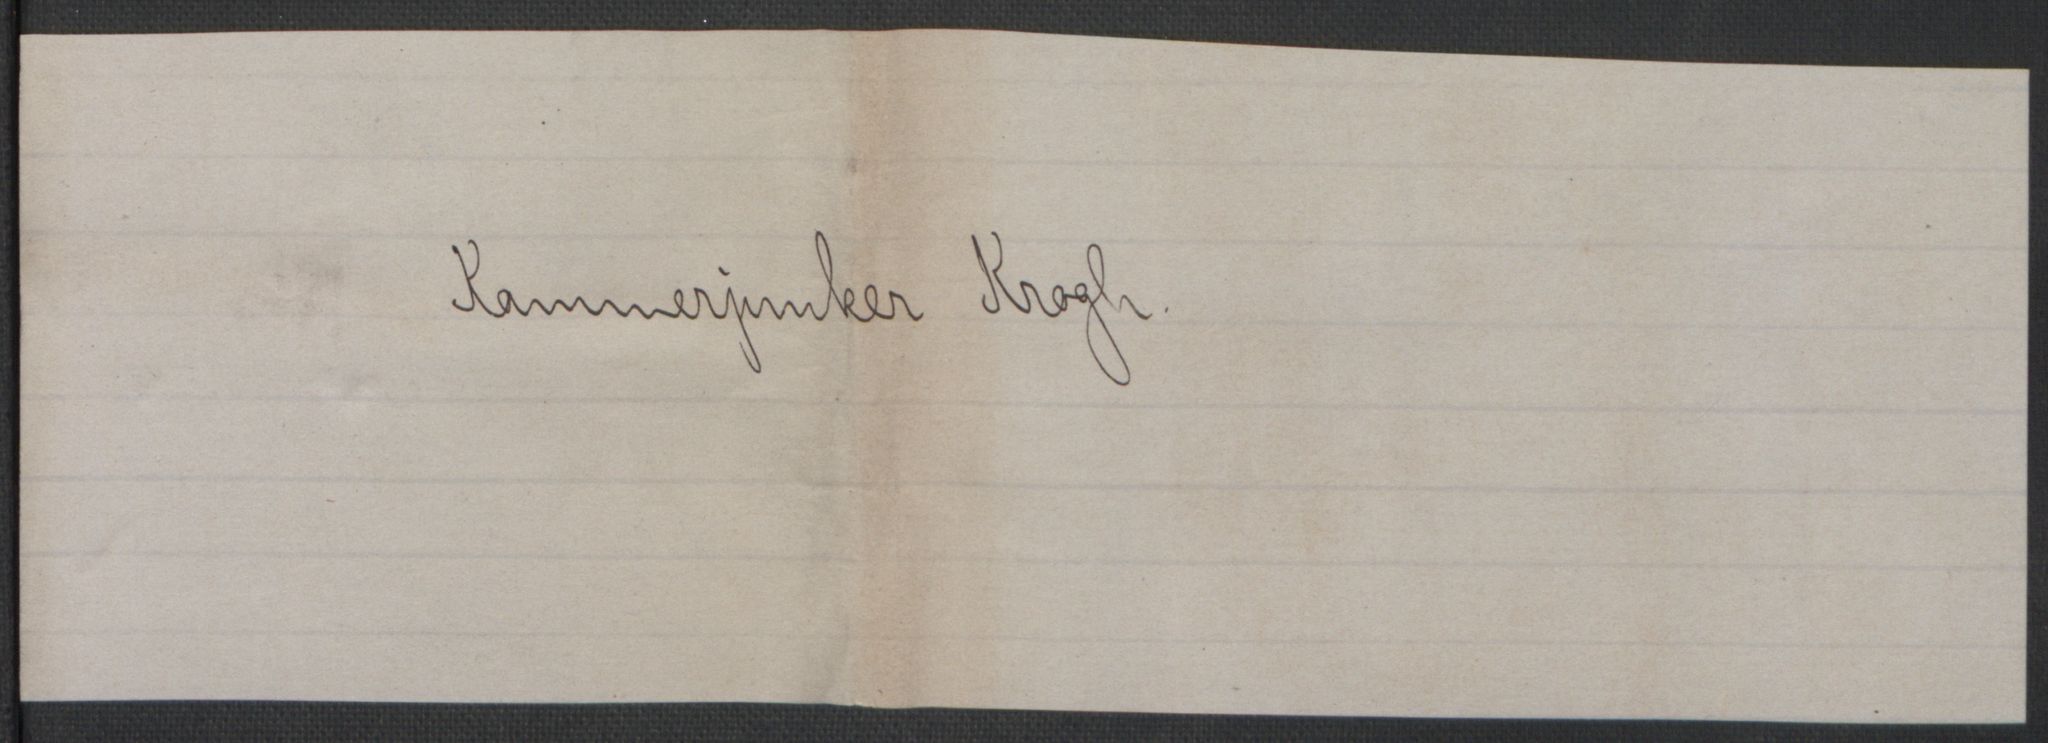 Kammerjunker Krogh.